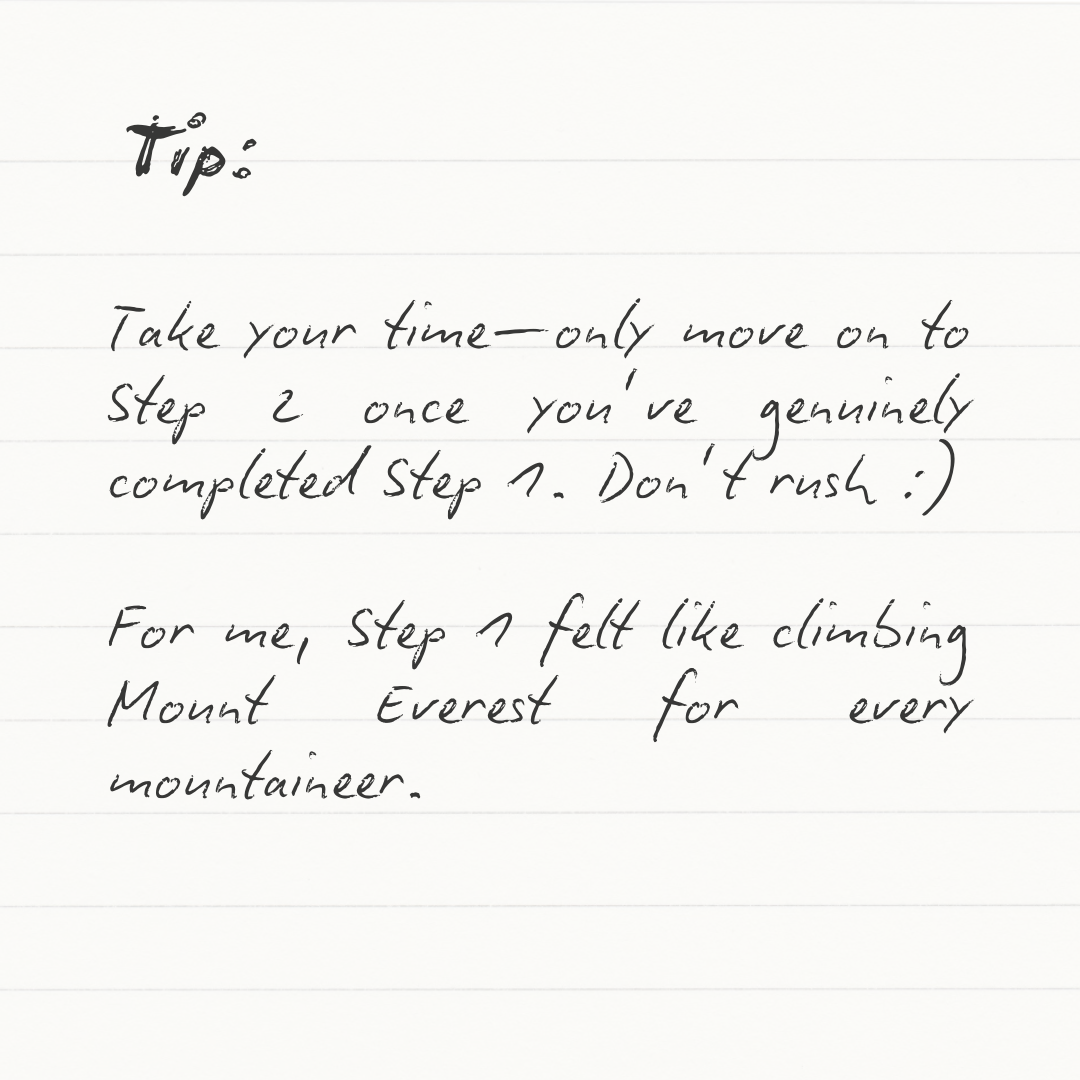 Tip:
Take your time—only move on to
Step 2 once you've genuinely
completed Step 1. Don't rush :)
For me, Step 1 felt like climbing
Mount Everest for every
mountaineer.